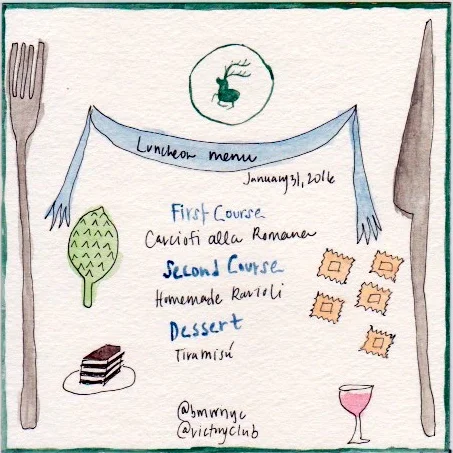 Luncheon menu
January 31, 2016
First Course
Carciofi alla Romana
Second Course
Homemade Ravioli
Dessert
Tiramisú
@bmwnyc
@victoryclub